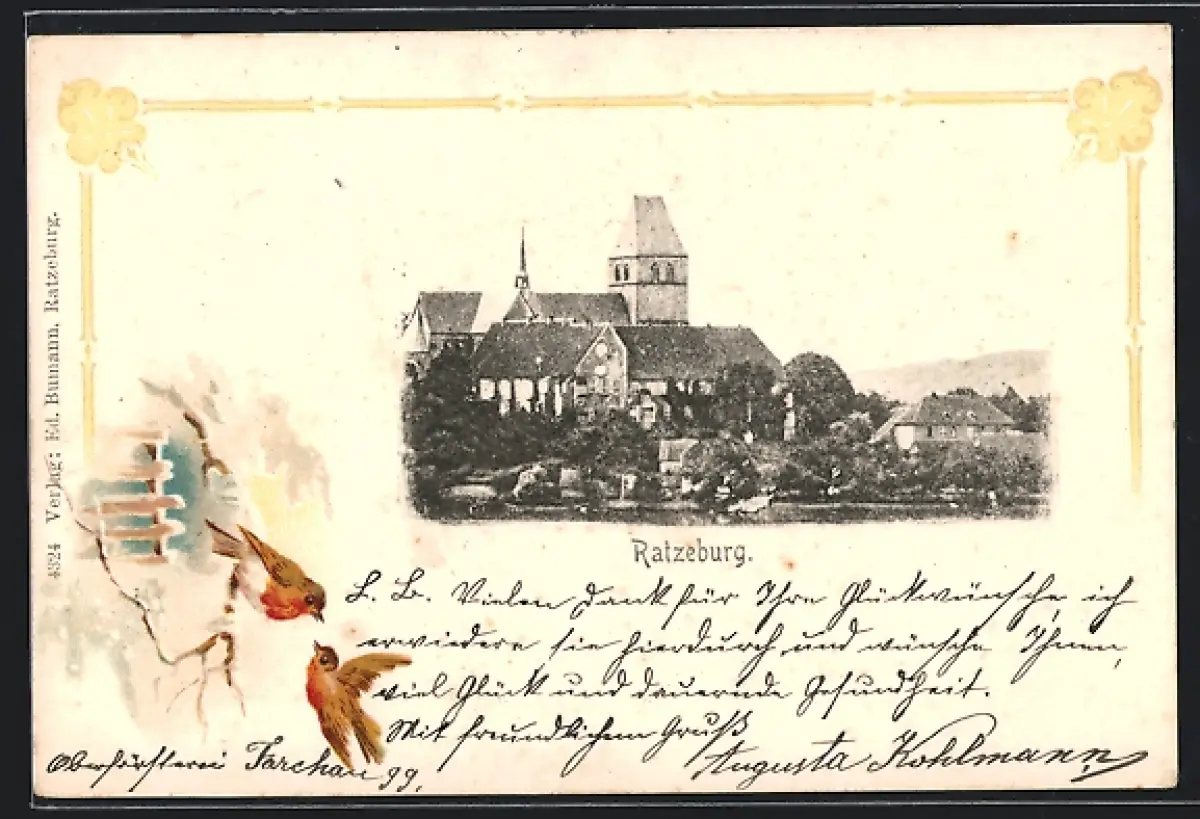 4324 Verlag: Ed. Bumann, Ratzeburg.
Ratzeburg.
L. B. Vielen Dank für Ihre Glückwünsche, ich
erwiedere sie hierdurch und wünsche Ihnen
viel Glück und dauernde Gesundheit.
Mit freundlichem Gruß
Augusta Kohlmann
Oberförsterei Farchau 99.